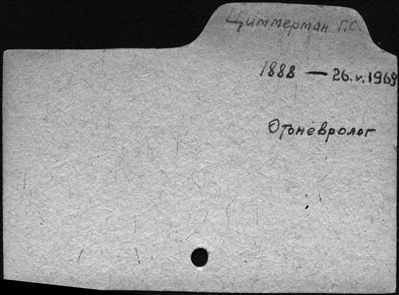 Циммерман Г.С.
1888 — 26.V.1969
Отоневролог